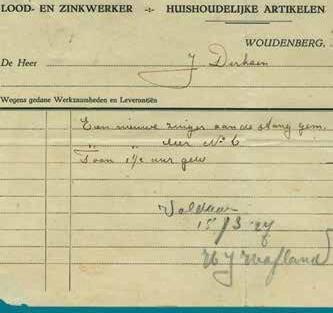 LOOD- EN ZINKWERKER -:- HUISHOUDELIJKE ARTIKELEN
WOUDENBERG,
De Heer J Derksen
Wegens gedane Werkzaamheden en Leverantiën
Een nieuwe zuiger aan de stang gem.
" " leer No 6
Toon 1½ uur gew
Voldaan
15/3 27